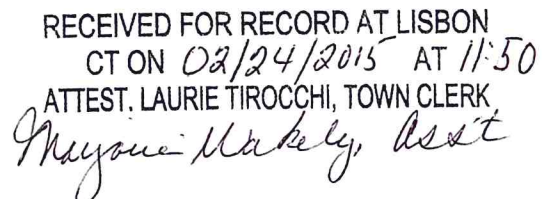 RECEIVED FOR RECORD AT LISBON
CT ON 02/24/2015 AT 11:50
ATTEST. LAURIE TIROCCHI, TOWN CLERK
Marjorie Wakely, Ass't